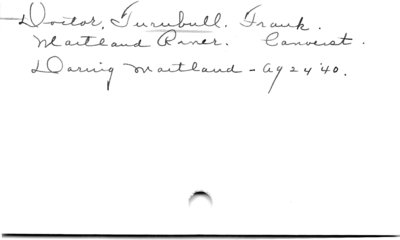 Doctor, Turnbull. Frank.
Maitland River. Canoeist.
Daring Maitland - Ag 24 '40.